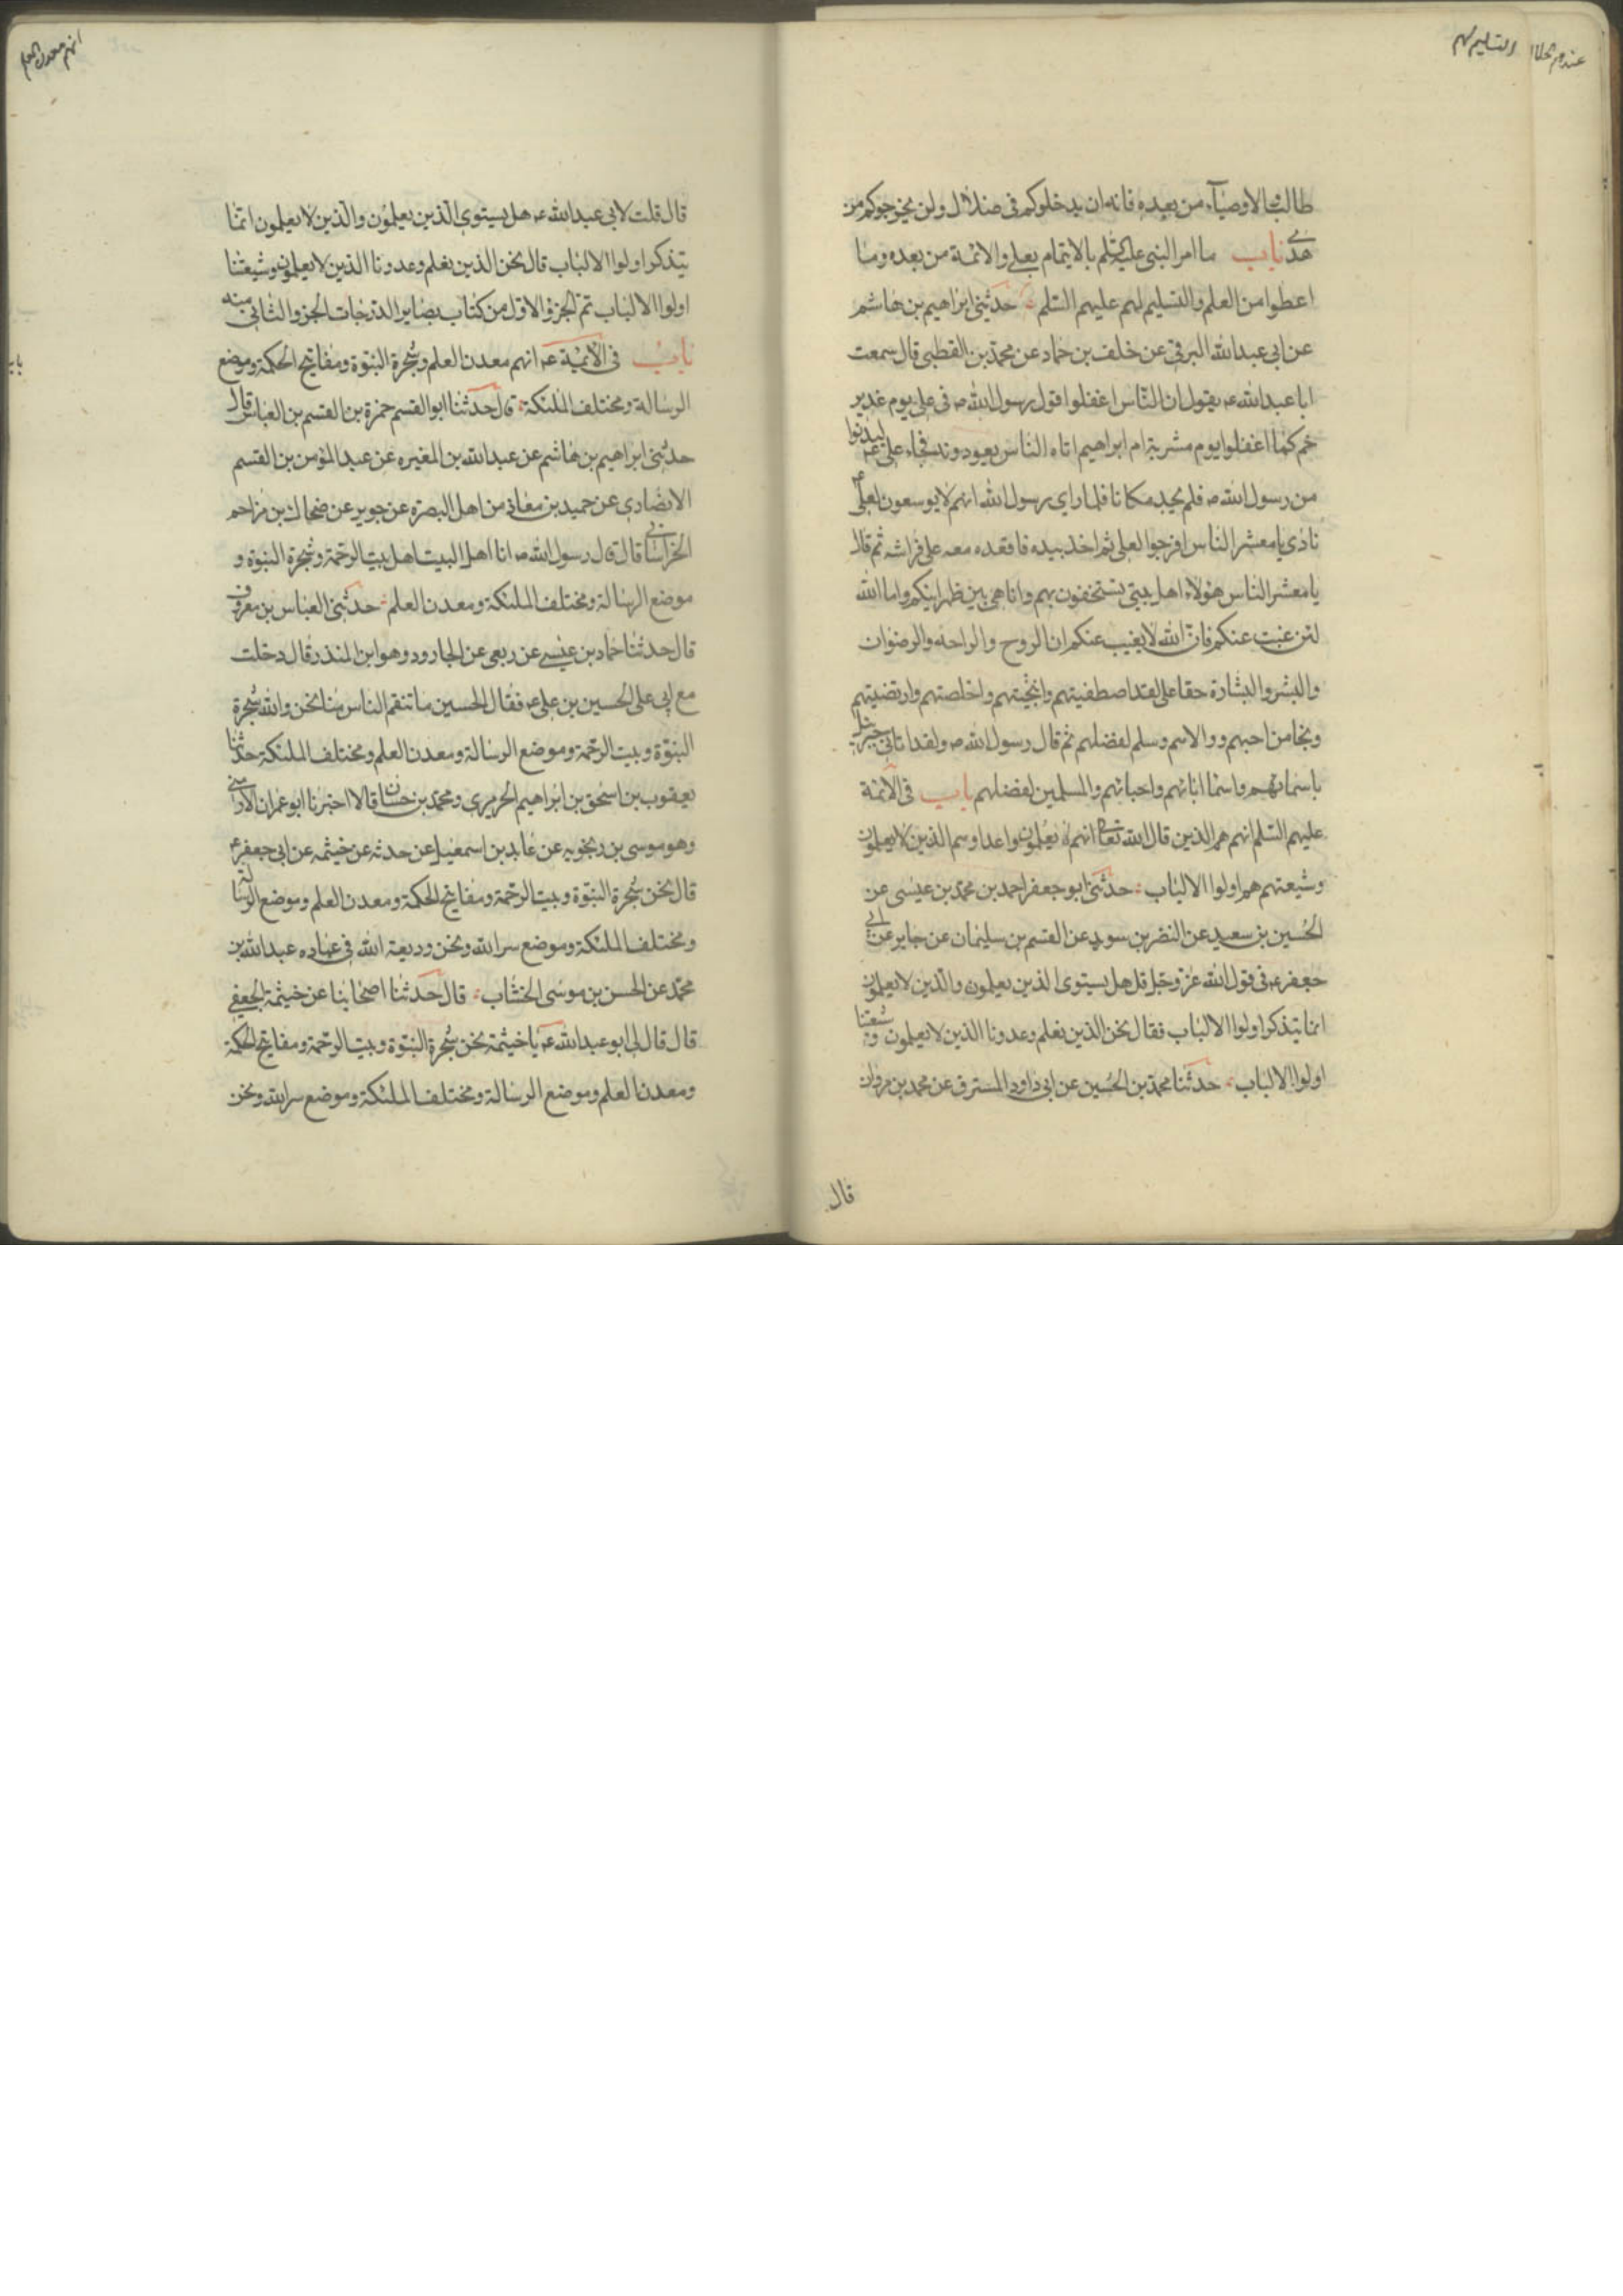 عندهم
والتسليم لهم
طالب والاوصيآء من بعده فانه ان يدخلوكم فى ضلال ولن يخرجوكم من
هدى باب ما امر النبى عليه السلم بالايتمام بعلى والائمة من بعده وما
اعطوا من العلم والتسليم لهم عليهم السلم حدثنى ابراهيم بن هاشم
عن ابى عبدالله البرقى عن خلف بن حماد عن محمد بن القطبى قال سمعت
ابا عبدالله عـ يقول ان الناس اغفلوا قول رسول الله صـ فى على يوم غدير
خم كما اغفلوا يوم مشربة ام ابراهيم اتاه الناس يعودونه فجاء على عـ ليدنوا
من رسول الله صـ فلم يجد مكانا فلما راى رسول الله انهم لا يوسعون لعلى عـ
نادى يا معشر الناس افرجوا لعلى ثم اخذ بيده فاقعده معه على فراشه ثم قال
يا معشر الناس هؤلاء اهل بيتى تستخفون بهم وانا هى بين ظهرانيكم واما الله
لئن غبت عنكم فان الله لا يغيب عنكم ان الروح والراحة والرضوان
والبشر والبشارة حقا على لقد اصطفيتهم وانجيتهم واخلصتهم وارتضيتهم
ونجا من احبهم ووالاهم وسلم لفضلهم ثم قال رسول الله صـ ولقد اتانى جبرئيل
باسمائهم واسما ابائهم واحبائهم والمسلمين لفضلهم باب فى الائمة
عليهم السلم انهم هم الذين قال الله تعالى انهم يعلمون واعداوهم الذين لا يعلمون
وشيعتهم هم اولوا الالباب حدثنى ابو جعفر احمد بن محمد بن عيسى عن
الحسين بن سعيد عن النضر بن سويد عن القسم بن سليمان عن جابر عن ابى
جعفر عـ فى قول الله عز وجل قل هل يستوى الذين يعلمون والذين لا يعلمون
انما يتذكر اولوا الالباب فقال نحن الذين نعلم وعدونا الذين لا يعلمون وشيعتنا
اولوا الالباب حدثنا محمد بن الحسين عن ابى داود المسترق عن محمد بن مروان
قال
انهم معدن العلم
قال قلت لابى عبدالله عـ هل يستوى الذين يعلمون والذين لا يعلمون انما
يتذكر اولوا الالباب قال نحن الذين نعلم وعدونا الذين لا يعلمون وشيعتنا
اولوا الالباب تم الجزؤ الاول من كتاب بصاير الدرجات الجزو الثانى منه
باب فى الائمة عـ انهم معدن العلم وشجرة النبوة ومفاتيح الحكمة وموضع
الرسالة ومختلف الملئكة قال حدثنا ابو القسم حمزة بن القسم بن العباس قال
حدثنى ابراهيم بن هاشم عن عبدالله بن المغيره عن عبد المؤمن بن القسم
الانصارى عن حميد بن معانى من اهل البصرة عن جويبر عن ضحاك بن مزاحم
الخراسانى قال قال رسول الله صـ انا اهل البيت اهل بيت الرحمة وشجرة النبوة و
موضع الرسالة ومختلف الملئكة ومعدن العلم حدثنى العباس بن معروف
قال حدثنا حماد بن عيسى عن ربعى عن الجارود وهو ابن المنذر قال دخلت
مع ابى على الحسين بن على عـ فقال الحسين ما تنقم الناس منا نحن والله شجرة
النبوة وبيت الرحمة وموضع الرسالة ومعدن العلم ومختلف الملئكة حدثنا
يعقوب بن اسحق بن ابراهيم الحريرى ومحمد بن حسان قالا اخبرنا ابو عمران الارمنى
وهو موسى بن زنجويه عن عابد بن اسمعيل عن حدثه عن خيثمه عن ابى جعفر عـ
قال نحن شجرة النبوة وبيت الرحمة ومفاتيح الحكمة ومعدن العلم وموضع الرسالة
ومختلف الملئكة وموضع سر الله ونحن وديعة الله فى عباده عبدالله بن
محمد عن الحسن بن موسى الخشاب قال حدثنا اصحابنا عن خيثمة الجعفى
قال قال لى ابو عبدالله عـ يا خيثمة نحن شجرة النبوة وبيت الرحمة ومفاتيح الحكمة
ومعدن العلم وموضع الرسالة ومختلف الملئكة وموضع سر الله ونحن